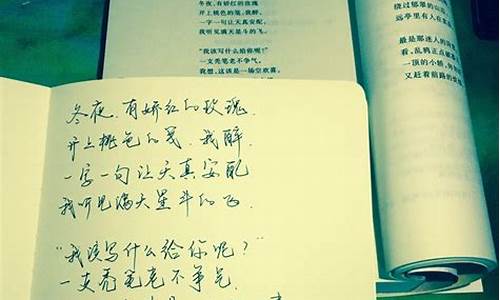 冬夜，有娇红的玫瑰
开上桃色的笺，我醉，
一字一句让天真安配，
我听见满天星斗的飞。
“我该写什么给你呢？”
一支秃笔老不争气，
我想，这该是一场空欢喜，
绕过郁翠的山
远亭里有人在
最是那迷人的
看，乱鸦正点
一顶的小轿，
又赶着前路的
冬夜，有娇红的玫瑰，
开上桃色的笺，我醉，
一字一句让天真安配
我听见满天星斗的飞．
“我该写什么给你呢？”
一支秃笔老不争气，